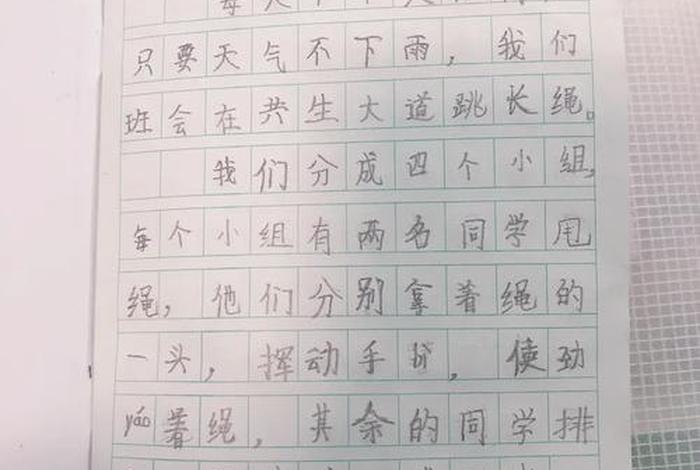 每天下午大
只要天气不下雨，我们
班会在共生大道跳长绳。
我们分成四个小组，
每个小组有两名同学甩
绳，他们分别拿着绳的
一头，挥动手，使劲
yáo着绳，其余的同学排